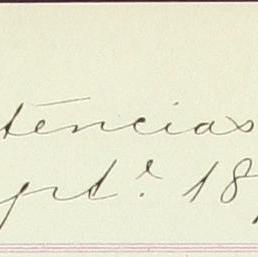 tências
ptº. 18